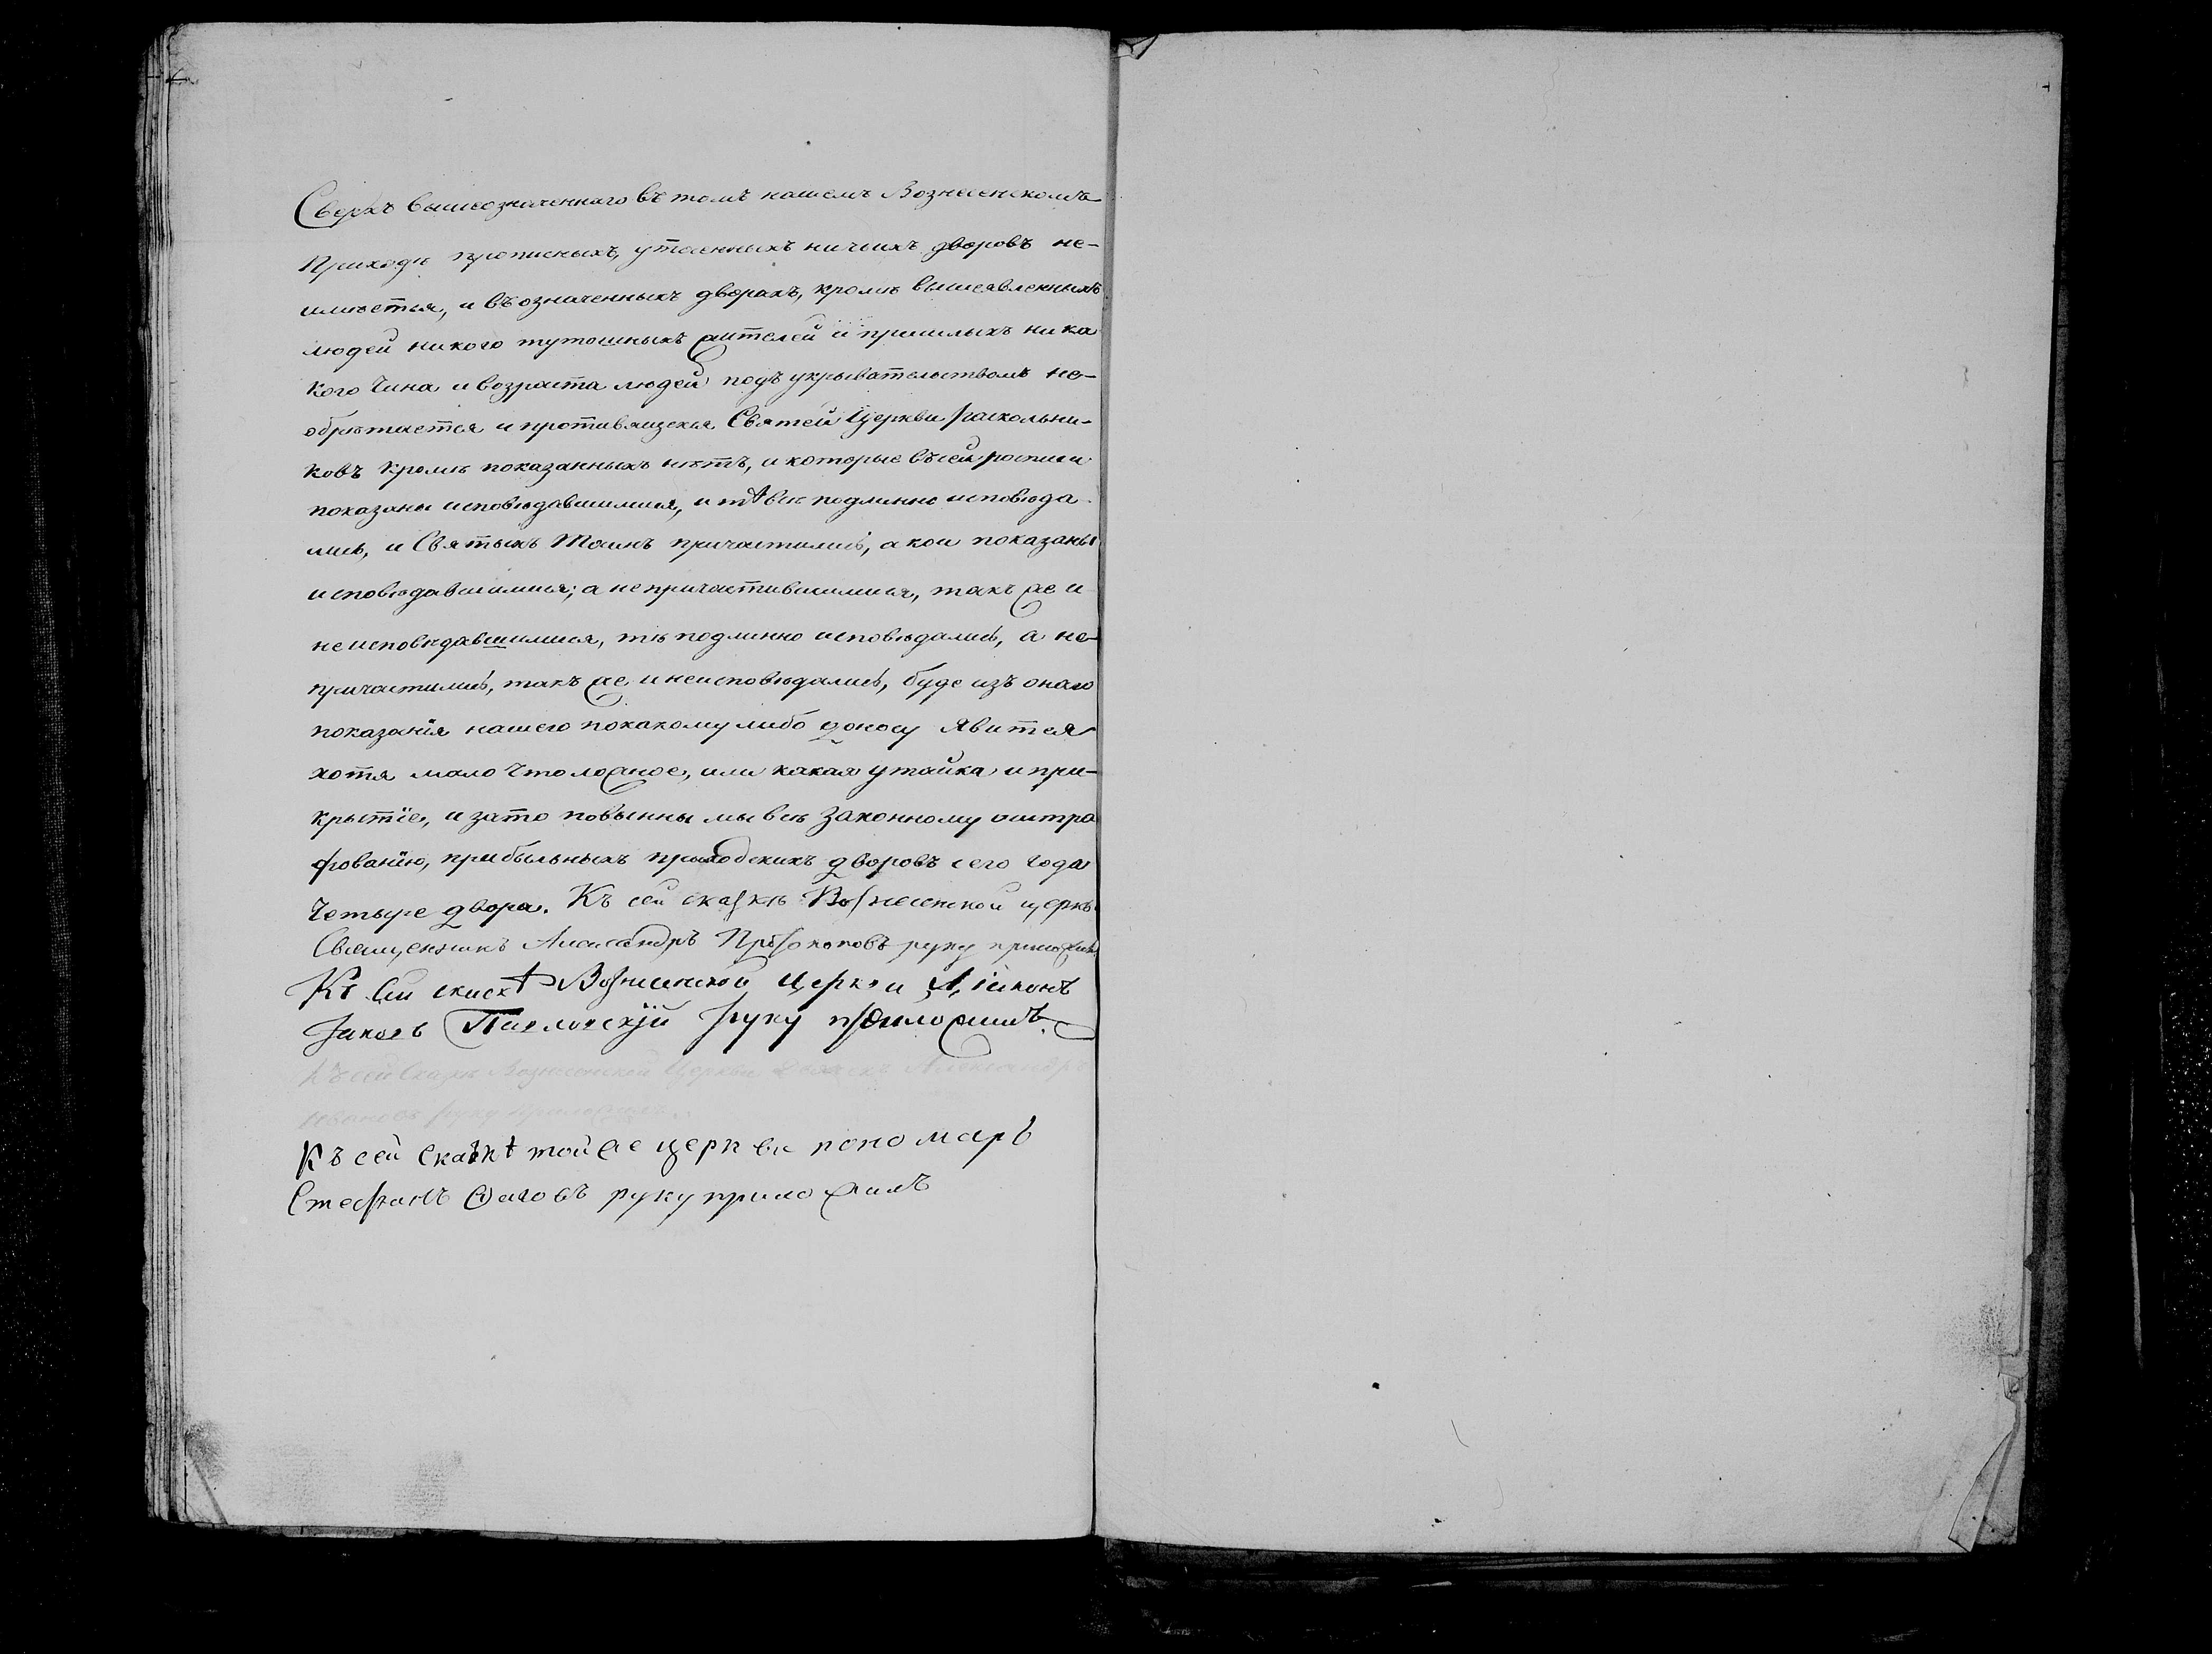 Сверхъ вышеозначеннаго въ томъ нашемъ Вознесенскомъ
Приходѣ прописныхъ, утаенныхъ ничьихъ дворовъ не-
имѣется, и въ означенныхъ дворахъ, кромѣ вышеявленныхъ
людей никого тутошныхъ жителей и пришлыхъ ника
кого чина и возраста людей подъ укрывательствомъ не-
обрѣтается и противящехся Святей Церкви раскольни-
ковъ кромѣ показанныхъ нѣтъ, и которые въ сей росписи
показаны исповѣдавшимися, и тѣ всѣ подлинно исповѣда
лись, и Святыхъ Таинъ причастились, а кои показаны
исповѣдавшимися; а не причастившимися, такъ же и
не исповѣдавшимися, тѣ подлинно исповѣдались, а не-
причастились, такъ же и неисповѣдались, буде изъ онаго
показанія нашего покакому либо доносу явится
хотя мало что ложное, или какая утайка и при-
крытіе, и зато повынны мы всѣ законному оштра
фованію, прибыльныхъ приходскихъ дворовъ сего года
четыре двора. Къ сей сказкѣ Вознесенской церкв
Священникъ Александръ руку приложилъ
Къ сей скаскѣ Вознесенской церкви Діаконъ
Іаковъ Павловскій руку приложилъ.
Къ сей Сказкѣ Вознесенской Церкви Александръ
Ивановъ руку приложилъ.
Къ сей сказкѣ той же церкви пономарь
Стефанъ руку приложилъ